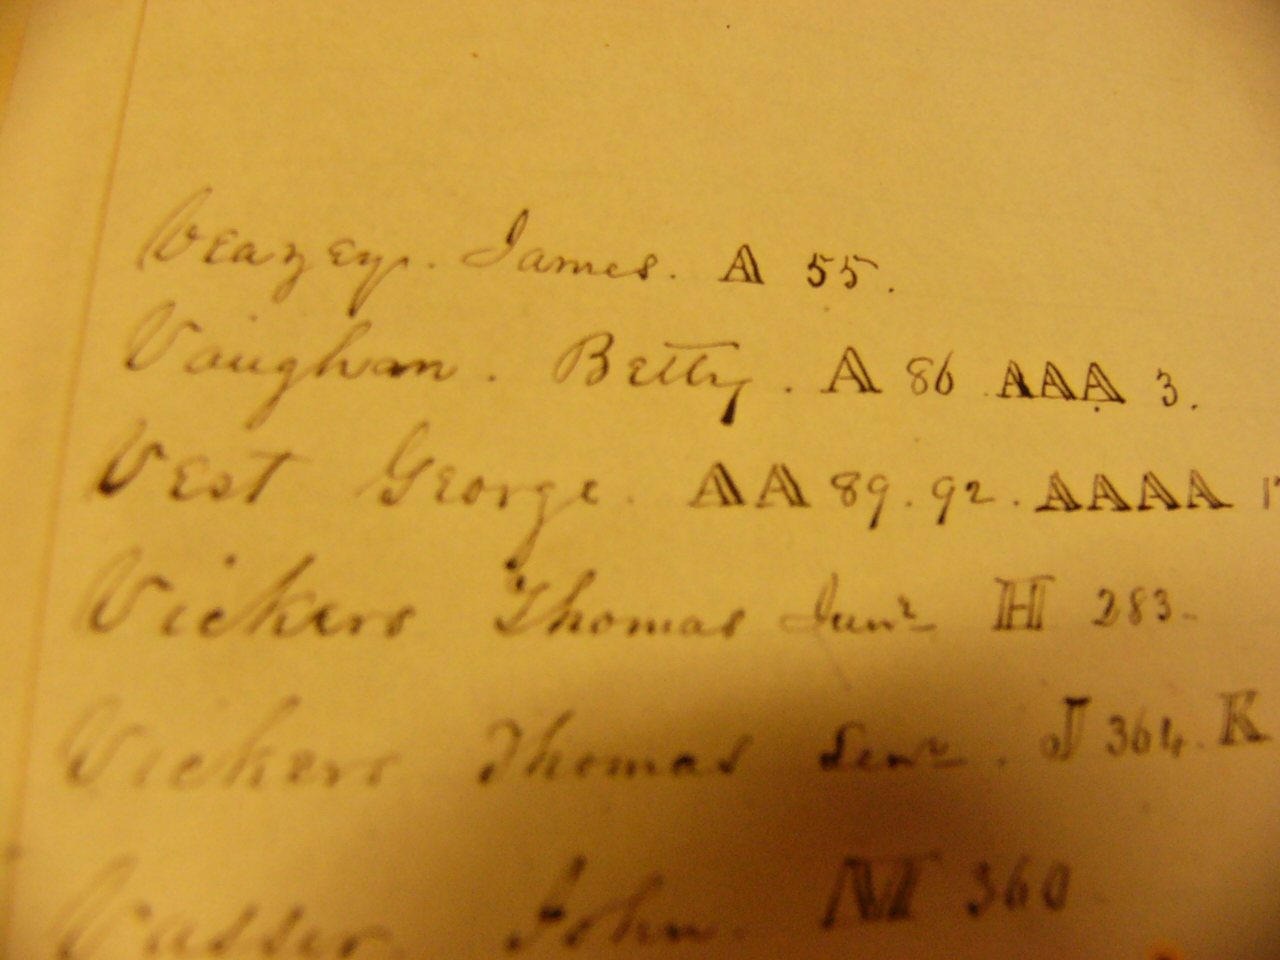 Veazey. James. A 55.
Vaughan. Betty. A 86 AAA 3.
Vest George. AA 89. 92. AAAA
Vickers Thomas Junr H 283-
Vickers Thomas Senr. J 364. K
Vasser John. M 360